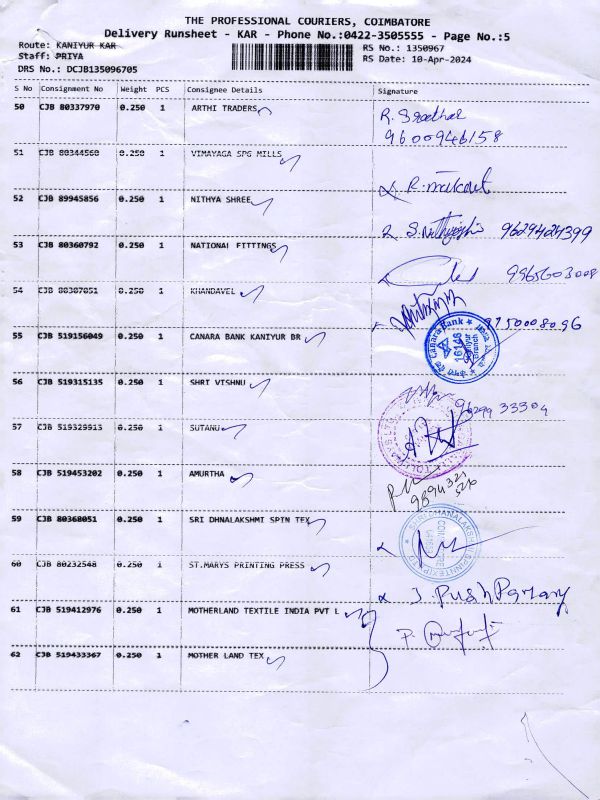 THE PROFESSIONAL COURIERS, COIMBATORE
Delivery Runsheet - KAR - Phone No.:0422-3505555 - Page No.:5
Route: KANIYUR KAR
RS No.: 1350967
Staff: PRIYA
RS Date: 10-Apr-2024
DRS No.: DCJB135096705
S No Consignment No Weight PCS Consignee Details Signature
50 CJB 80337970 0.250 1 ARTHI TRADERS
9600946158
51 CJB 80344560 0.250 1 VIMAYAGA SPG MILLS
52 CJB 89945856 0.250 1 NITHYA SHREE
9629424399
53 CJB 80360792 0.250 1 NATIONAL FITTINGS
54 CJB 80307051 0.250 1 KHANDAVEL
9750008096
55 CJB 519156049 0.250 1 CANARA BANK KANIYUR BR
Canara Bank
16146
56 CJB 519315135 0.250 1 SHRI VISHNU
57 CJB 519329913 0.250 1 SUTANU
58 CJB 519453202 0.250 1 AMURTHA
59 CJB 80368051 0.250 1 SRI DHNALAKSHMI SPIN TEX
60 CJB 80232548 0.250 1 ST.MARYS PRINTING PRESS
61 CJB 519412976 0.250 1 MOTHERLAND TEXTILE INDIA PVT L
62 CJB 519433367 0.250 1 MOTHER LAND TEX